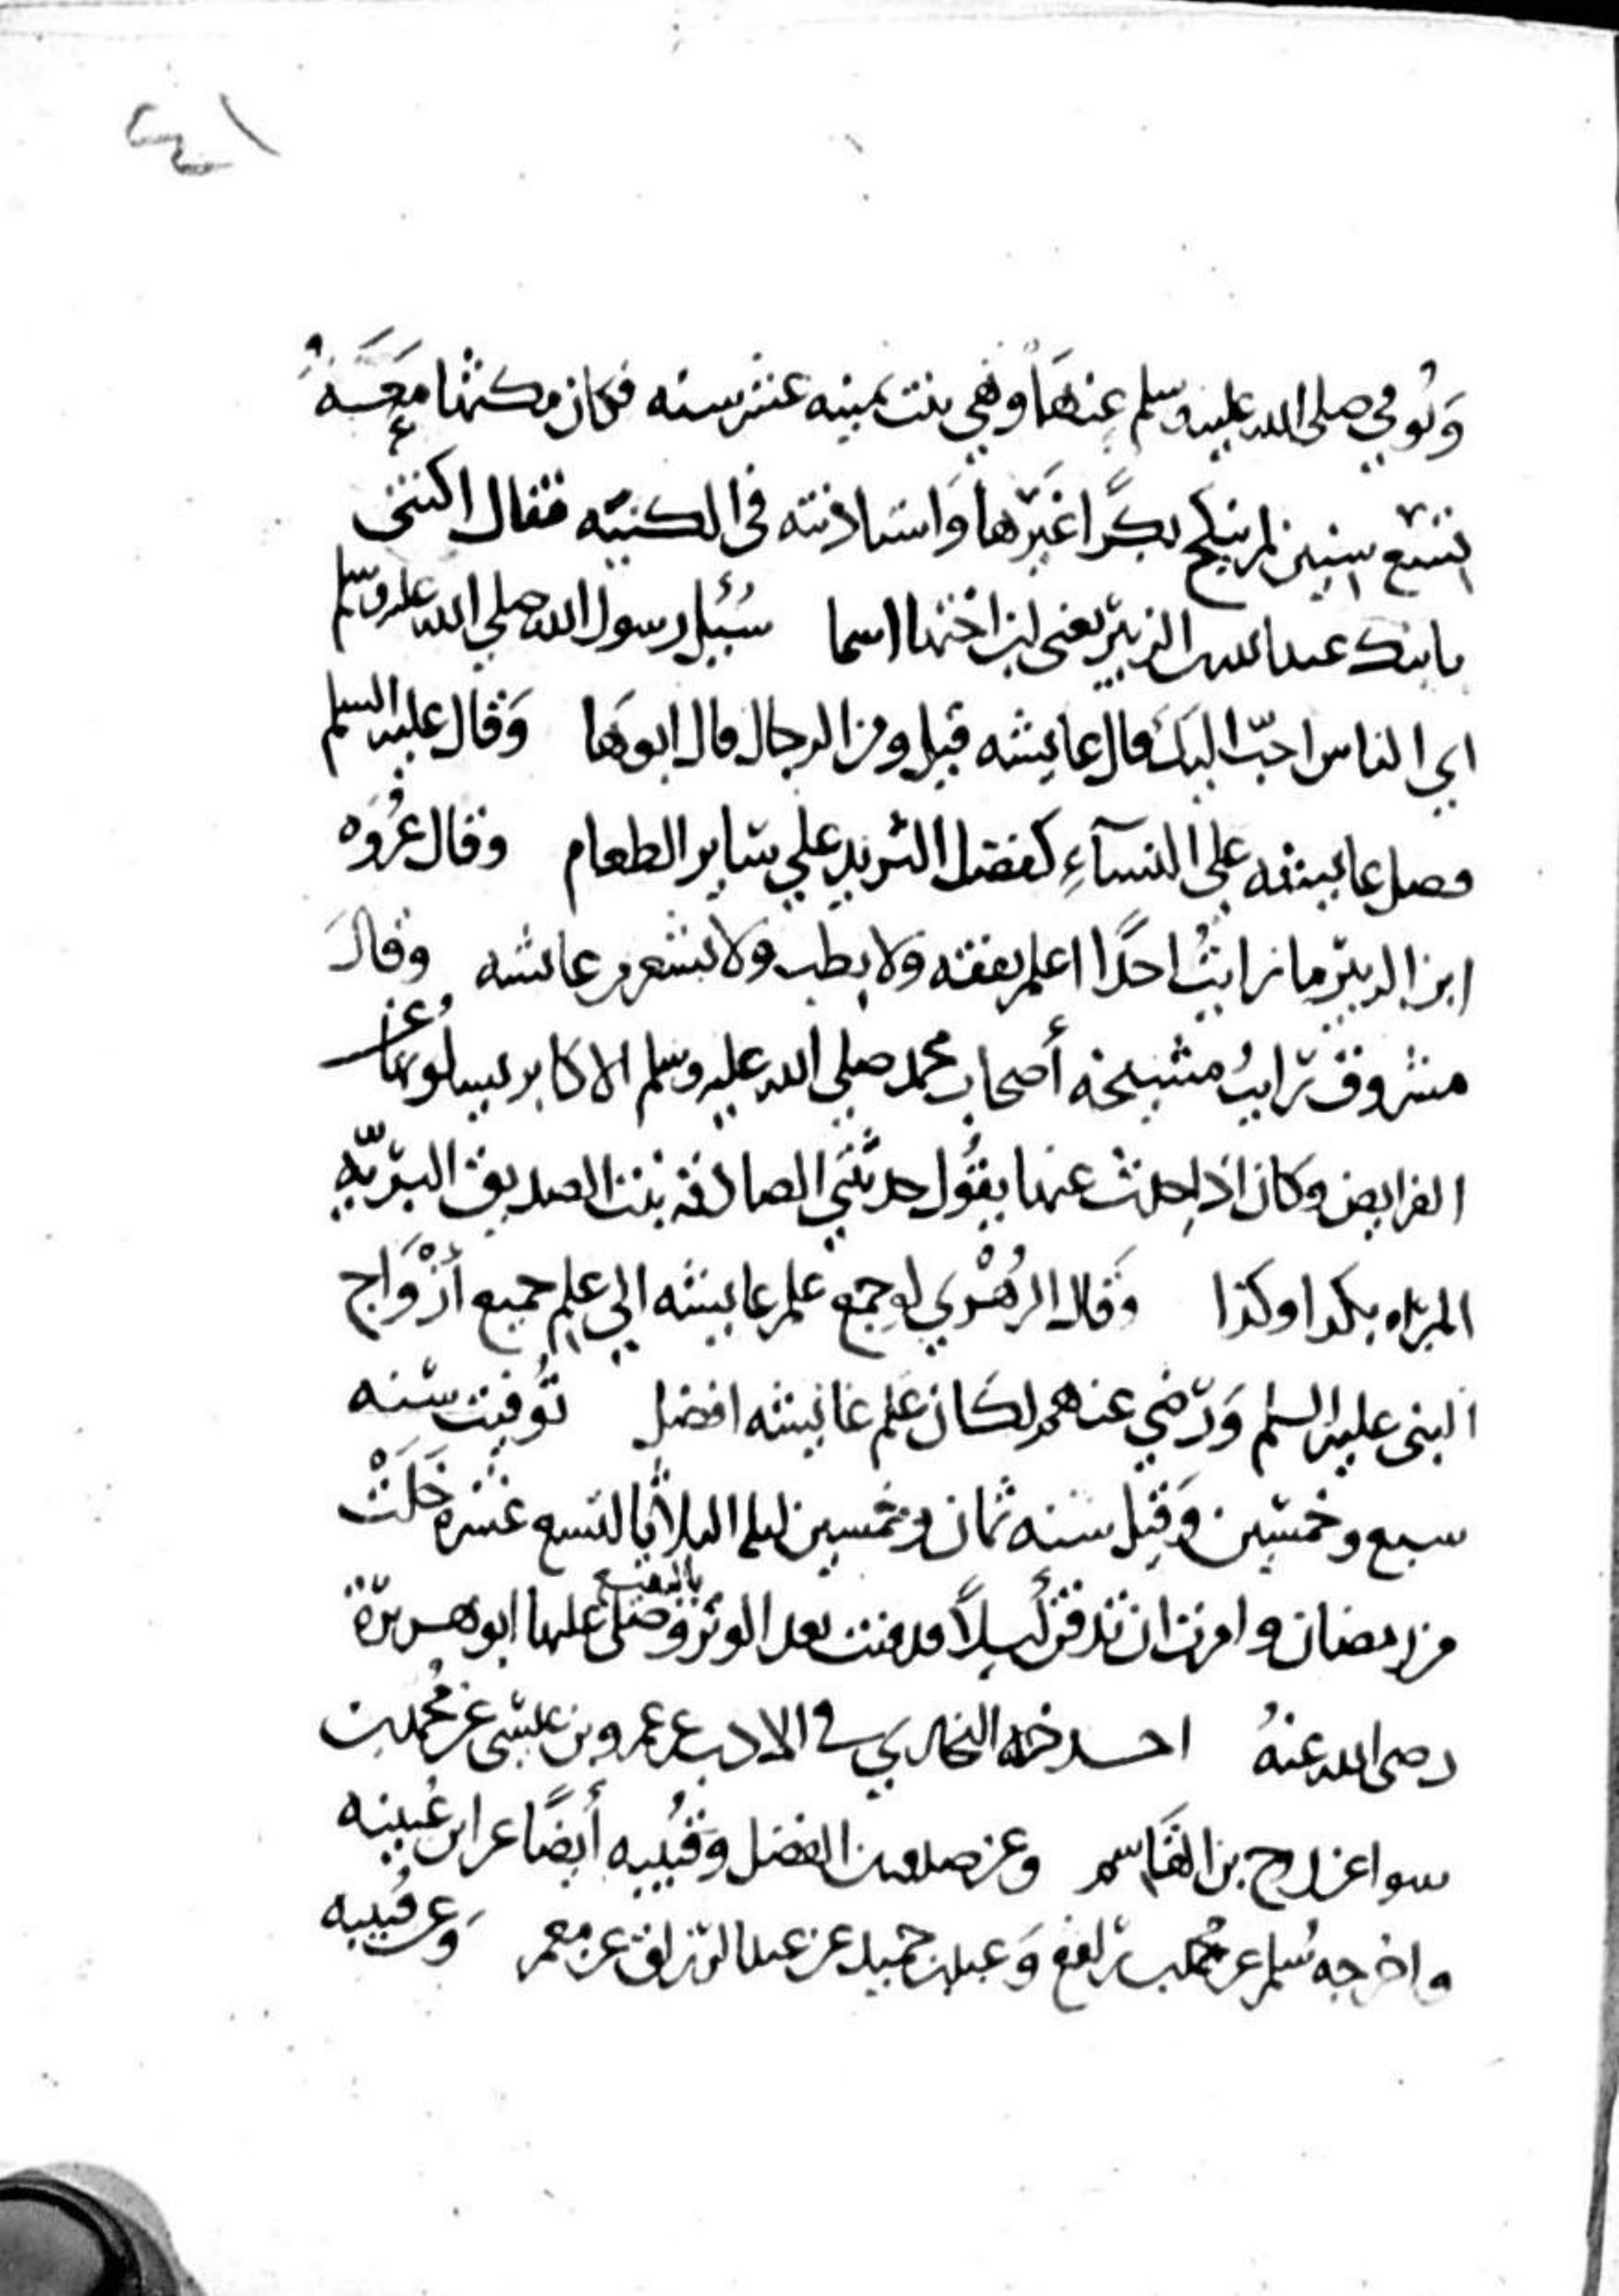 ٤١
وَتُوفي صلى الله عليه وسلم عنهَا وهي بنت ثمنيه عشر سنه فكان مكثها مَعَهُ
تسع سنين لم ينكح بكرًا غيرها وَاستاذنته في الكنيه فقال اكتني
بابنك عبد الله بن الزبير يعني ابن اختها اسما سُئِل رسول الله صلي الله عليه وسلم
اي الناس احبّ اليك قال عايشه قيل ومن الرجال قال ابوهَا وَقال عليه السلم
فضل عايشه على النسآءِ كفضل الثريد علي ساير الطعام وقال عُروَه
ابن الزبير ما رايتُ احدًا اعلم بفقه وَلا بطب ولا بشعر من عائشه وقالَ
مسروق رايتُ مشيخه أصحاب محمد صلي الله عليه وسلم الاكابر يسلونها عن
الفرايض وكان اذا حدث عنها يقُول حدثتني الصادقه بنت الصديق البريّه
المبراه بكذا وكذا وَقال الزُهْري لو جمع علم عايشه الي علم جميع أزْوَاج
النبي عليه السلم وَرضي عنهم لكان علم عايشه افضل تُوفيت سنه
سبع وخمسين وَقيل سنه ثمان وخمسين ليله الثلاثا لتسع عشره خَلَتْ
من رمضان وامرت ان تدفن لَيلاً فدفنت بعد الوتر بالبقيع وصلى عليها ابو هريرة
رضى الله عنهُ اخرجه البخاري في الادب عن عمرو بن عيسى عن مُحمد بن
سوا عن روح بن القَاسم وعن صدقه بن الفضل وقُتيبه أيضًا عن ابن عُيينه
واخرجه مُسلم عن محمد بن رافع وَعبد بن حميد عن عبد الرزاق عن معمر وَعن قُتيبه